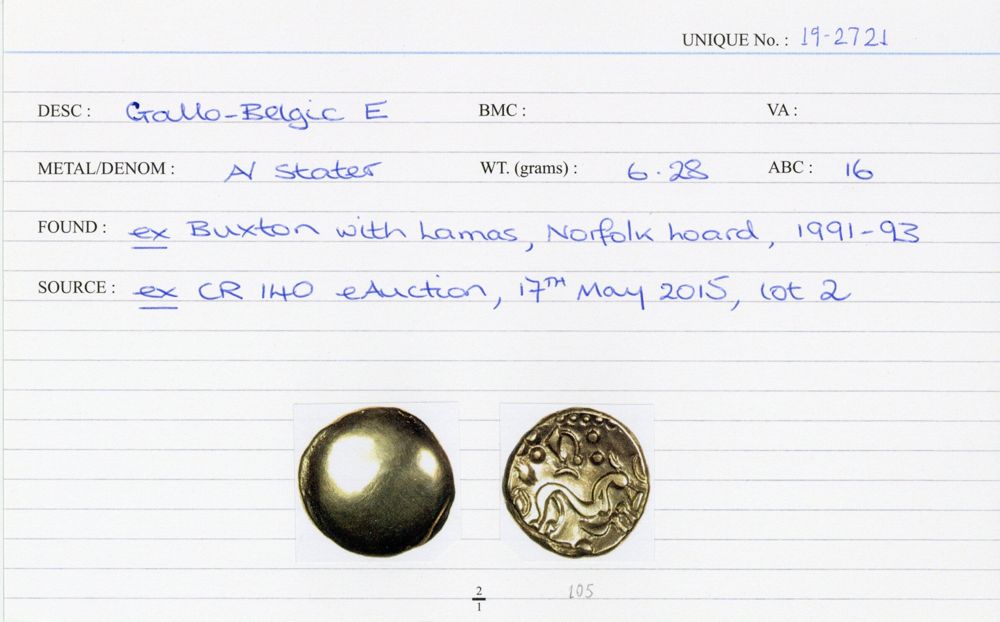 UNIQUE No. : 19-2721
DESC : Gallo-Belgic E BMC : VA :
METAL/DENOM : AV stater WT. (grams) : 6.28 ABC : 16
FOUND : ex Buxton with Lamas, Norfolk hoard, 1991-93
SOURCE : ex CR 140 eAuction, 17TH May 2015, lot 2
2/1 105